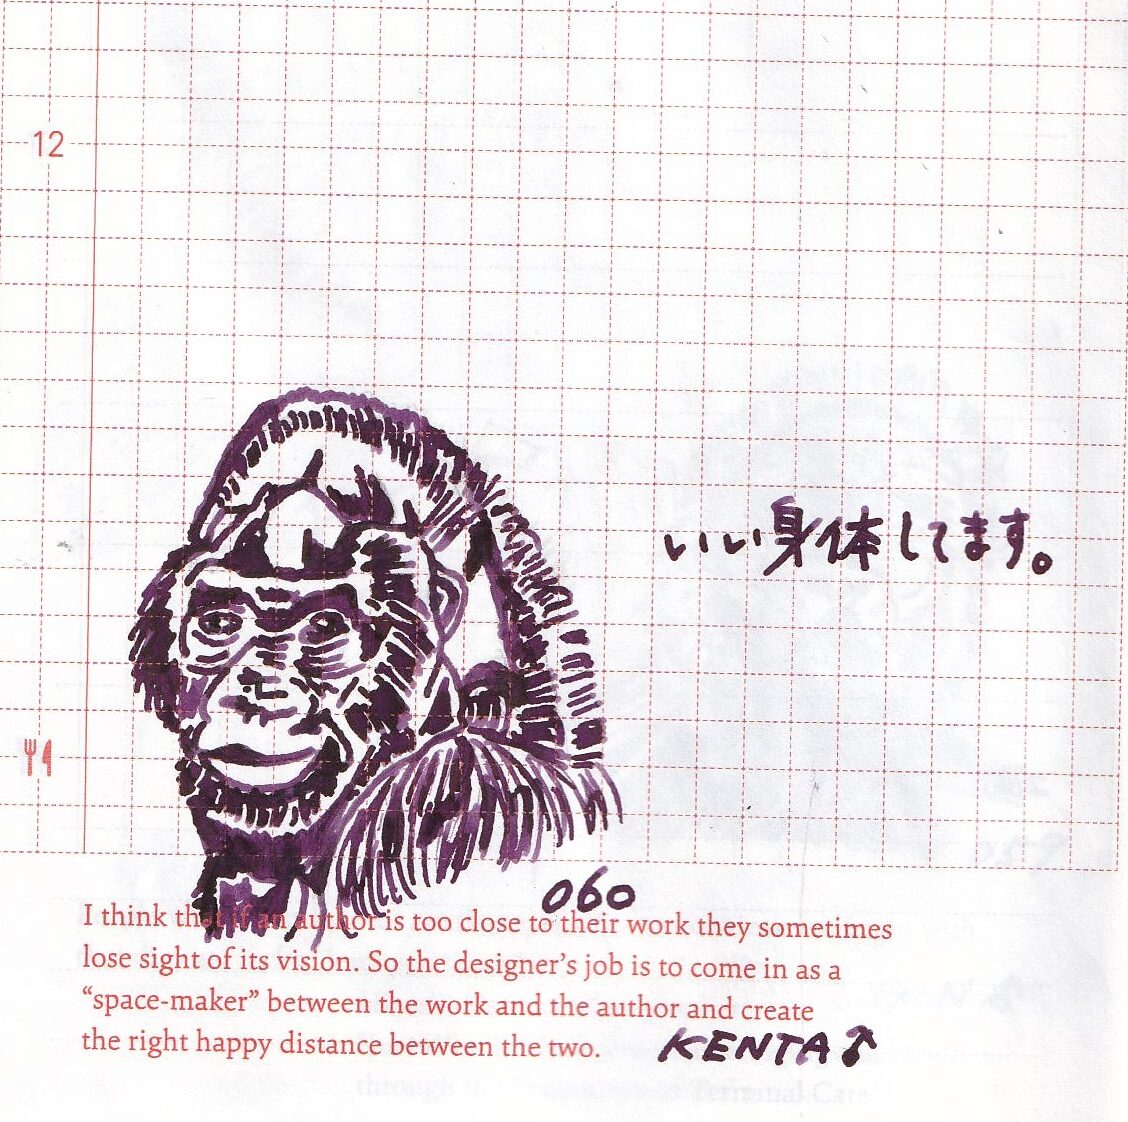 12
いい身体してます。
060
I think that if an author is too close to their work they sometimes
lose sight of its vision. So the designer's job is to come in as a
“space-maker” between the work and the author and create
the right happy distance between the two.
KENTA↑